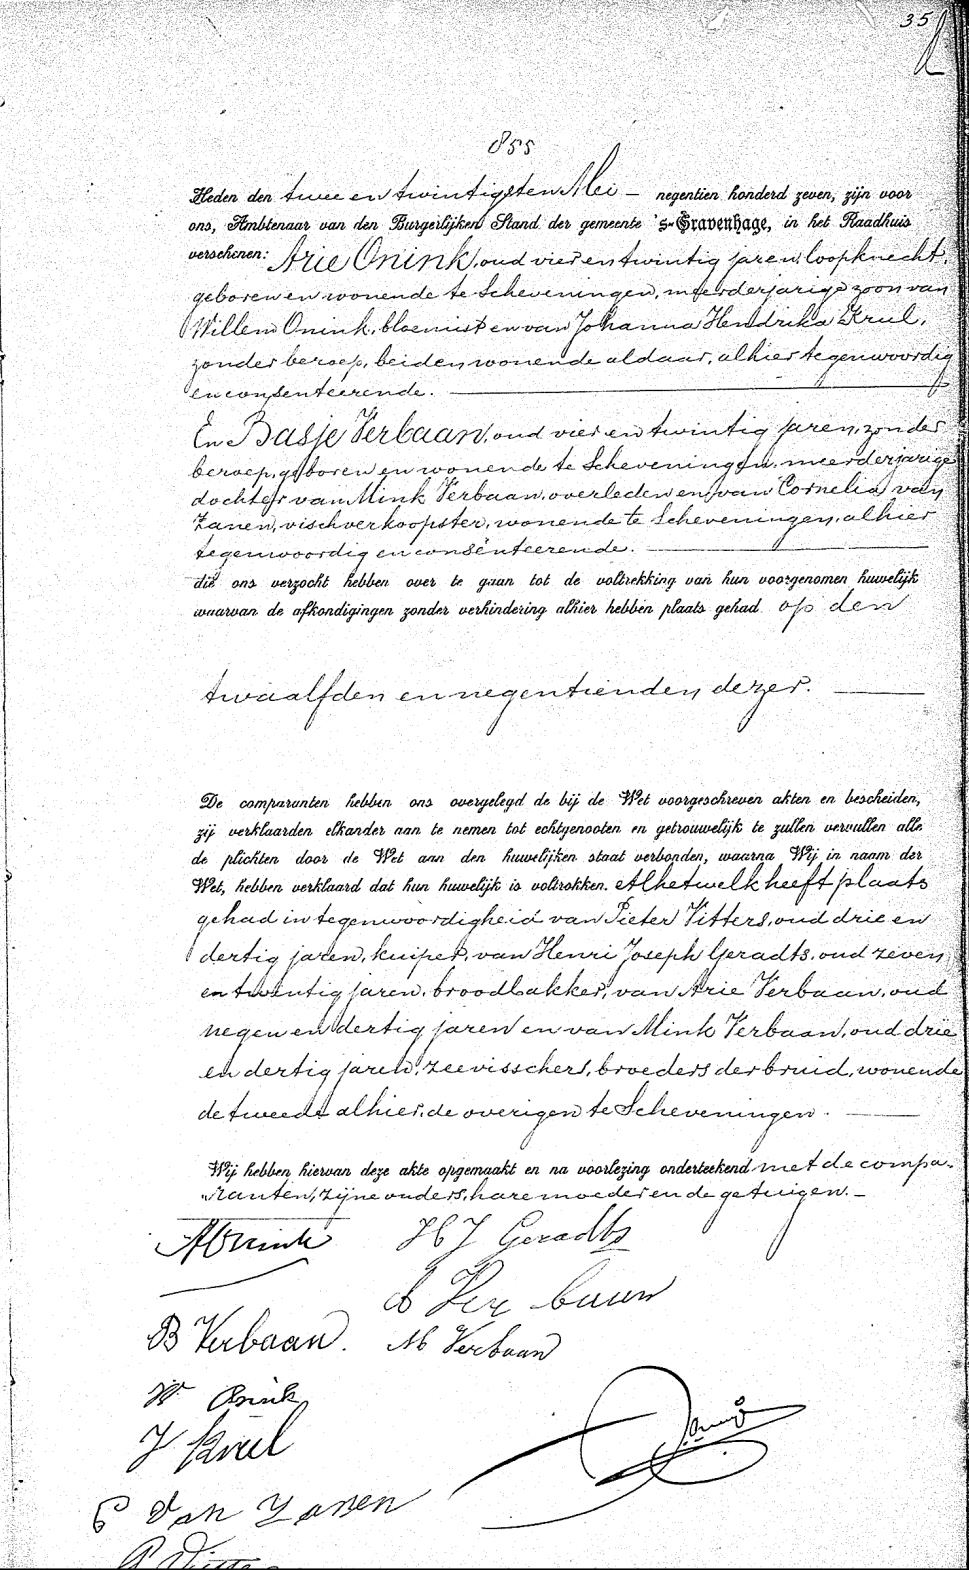 35
855
Heden den twee en twintigsten Mei — negentien honderd zeven, zijn voor
ons, Ambtenaar van den Burgerlijken Stand der gemeente 's-Gravenhage, in het Raadhuis
verschenen: Arie Onink, oud vier en twintig jaren, loopknecht,
geboren en wonende te Scheveningen, meerderjarige zoon van
Willem Onink, bloemist en van Johanna Hendrika Krul,
zonder beroep, beiden wonende aldaar, alhier tegenwoordig
en consenteerende.
En Basje Verbaan, oud vier en twintig jaren, zonder
beroep, geboren en wonende te Scheveningen, meerderjarige
dochter van Mink Verbaan, overleden en van Cornelia van
Zanen, vischverkoopster, wonende te Scheveningen, alhier
tegenwoordig en consenteerende.
die ons verzocht hebben over te gaan tot de voltrekking van hun voorgenomen huwelijk
waarvan de afkondigingen zonder verhindering alhier hebben plaats gehad op den
twaalfden en negentienden dezer.
De comparanten hebben ons overgelegd de bij de Wet voorgeschreven akten en bescheiden,
zij verklaarden elkander aan te nemen tot echtgenooten en getrouwelijk te zullen vervullen alle
de plichten door de Wet aan den huwelijken staat verbonden, waarna Wij in naam der
Wet, hebben verklaard dat hun huwelijk is voltrokken. Al hetwelk heeft plaats
gehad in tegenwoordigheid van Pieter Vitters, oud drie en
dertig jaren, kuiper, van Henri Joseph Geradts, oud zeven
en twintig jaren, broodbakker, van Arie Verbaan, oud
negen en dertig jaren en van Mink Verbaan, oud drie
en dertig jaren, zeevisschers, broeders der bruid, wonende
de tweede alhier, de overigen te Scheveningen.
Wij hebben hiervan deze akte opgemaakt en na voorlezing onderteekend met de compa-
ranten, zijne ouders, hare moeder en de getuigen. —
A Onink
H J Geradts
A Verbaan
B Verbaan.
M Verbaan
W Onink
J Krul
C van Zanen
P Vitters